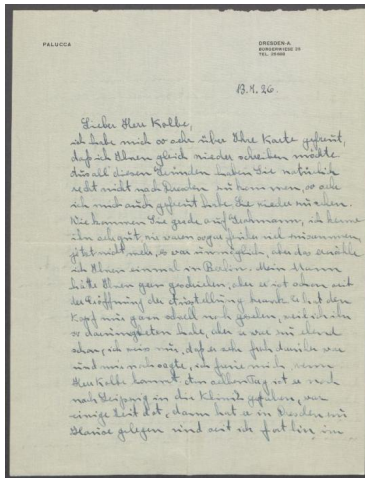 PALUCCA
DRESDEN-A.
BÜRGERWIESE 25
TEL.
13.X.26.
Lieber Herr Kolbe,
ich habe mich so sehr über Ihre Karte gefreut,
daß ich Ihnen gleich wieder schreiben möchte
Aus all diesen Gründen haben Sie natürlich
recht nicht nach Dresden zu kommen, so sehr
ich mich auch gefreut habe Sie wieder zu sehen.
Wie kommen Sie gerade auf ich kenne
ihn sehr gut, wir waren sogar früher viel zusammen,
jetzt nicht mehr, es war unmöglich, aber das erzähle
ich Ihnen einmal in Berlin. Mein Mann
hätte Ihnen gern geschrieben, aber er ist schon seit
der Eröffnung der Ausstellung krank. Er hat den
Kopf nur ganz schnell noch gesehen, weil ich ihn
so darum gebeten habe, aber es war ihm elend
schon, ich weiß nur, daß er sehr froh darüber war
und immer nach sagte, ich freue mich, wenn
Herr Kolbe kommt. Am selben Tag ist er noch
nach Leipzig in die Klinik gefahren, war
einige Zeit dort, dann hat er in Dresden zu
Hause gelegen und seit ist er fort hin im